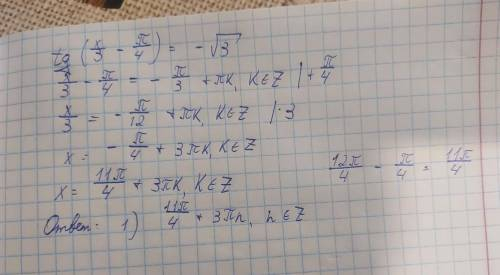 tg (x/3 - π/4) = -√3
x/3 - π/4 = - π/3 + πK, K∈Z | + π/4
x/3 = - π/12 + πK, K∈Z | · 3
x = - π/4 + 3πK, K∈Z
12π/4 - π/4 = 11π/4
x = 11π/4 + 3πK, K∈Z
Ответ: 1) 11π/4 + 3πn, n∈Z